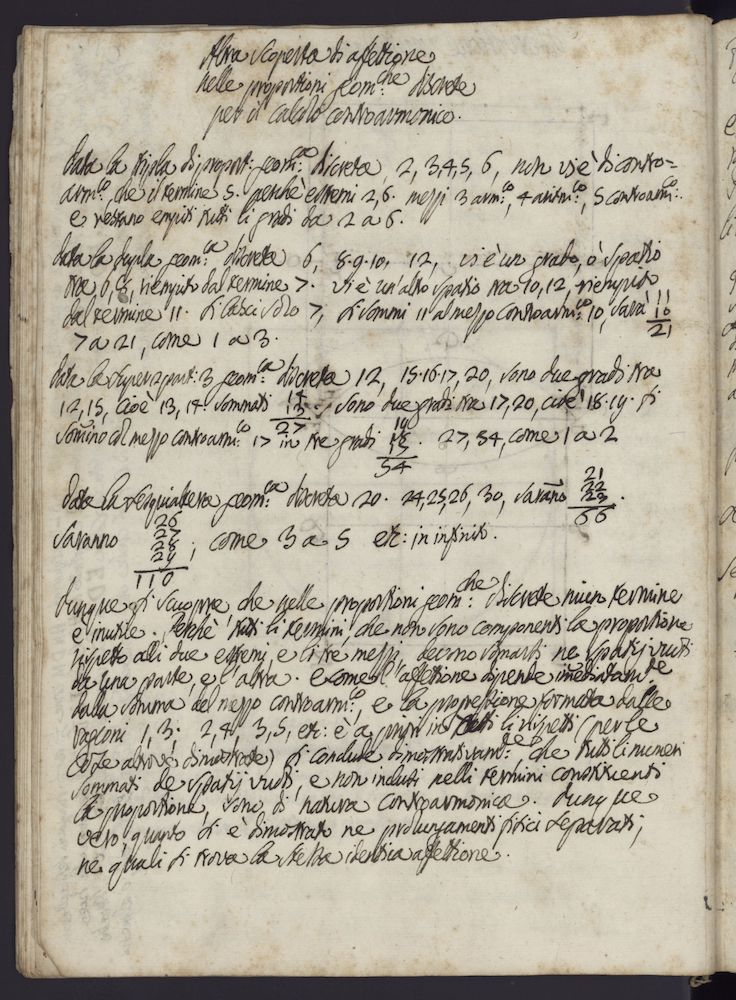 Altra scoperta di affezione
nelle proporzioni geom:che discrete
per il calcolo controarmonico.
Data la tripla di proporz: geom:ca discreta 2, 3,4,5, 6, non vi è di contro=
arm:co che il termine 5. perchè estremi 2,6. mezzi 3 arm:co, 4 aritm:co, 5 controarm:co.
e restano empiti tutti li gradi da 2 a 6.
Data la dupla geom:ca discreta 6, 8.9.10, 12, vi è un grado, ò spazio
tra 6, 8, riempito dal termine 7. vi è un'altro spazio tra 10,12, riempito
dal termine 11. si lasci solo 7, si sommi 11 al mezzo controarm:co 10, sarà 11
10
21
7 a 21, come 1 a 3.
Data la superz part: 3 geom:ca discreta 12, 15.16.17, 20, sono due gradi tra
12,15, cioè 13, 14. sommati 14
13
27
; sono due gradi tra 17,20, cioè 18.19. si
sommino col mezzo controarm:co 17 in tre gradi 19
18
17
54
. 27, 54, come 1 a 2
Data la sesquialtera geom:ca discreta 20. 24,25,26, 30, sarano 21
22
23
66
.
saranno 26
27
28
29
110
; come 3 a 5 etc: in infinito.
Dunque si scuopre, che nelle proporzioni geom:che discrete niun termine
è inutile. Perchè tutti li termini, che non sono componenti la proporzione
rispetto alli due estremi, e li tre mezzi, devono sommarsi ne spatij vuoti
da una parte, e l'altra. e come l'affezione dipende imediatam:te
dalla somma del mezzo controarm:co, e la progressione formata dalle
ragioni 1,3; 2,4, 3,5, etc: è a in tutti li rispetti (per le
cose altrove dimostrate) si conclude dimostrativam:te, che tutti li numeri
sommati de spatij vuoti, e non inclusi nelli termini constituenti
la proporzione, sono di natura controarmonica. Dunque
vero, quanto si è dimostrato ne prolungamenti fisici separati,
ne quali si trova la stessa identica affezione.